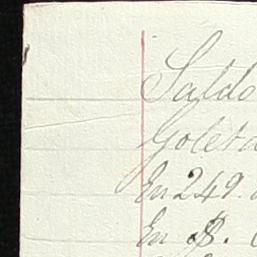 Saldo
Goleta
En 249.
En $.